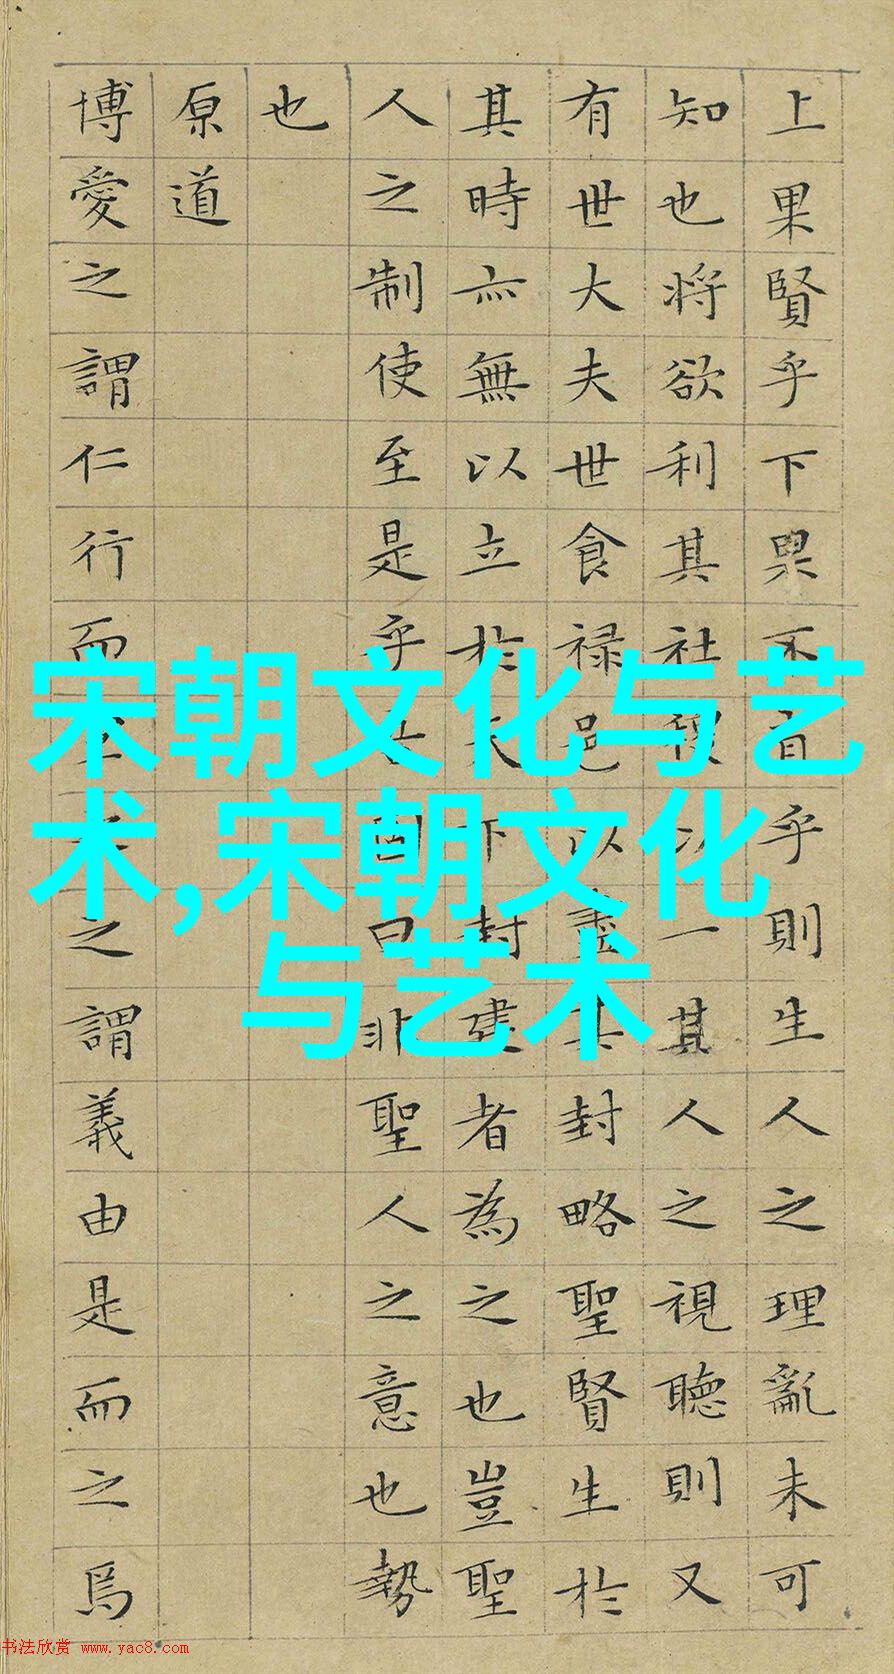 上果賢乎下果不肖乎則生人之理亂未可
知也將欲利其社稷以一其人之視聽則又
有世大夫世食祿邑以盡其封略聖賢生於
其時亦無以立於天下封建者為之也豈聖
人之制使至是乎吾固曰非聖人之意也勢
也
原道
博愛之謂仁行而宜之之謂義由是而之焉
宋朝文化与艺
术,宋朝文化
与艺术
书法欣赏 www.yac8.com